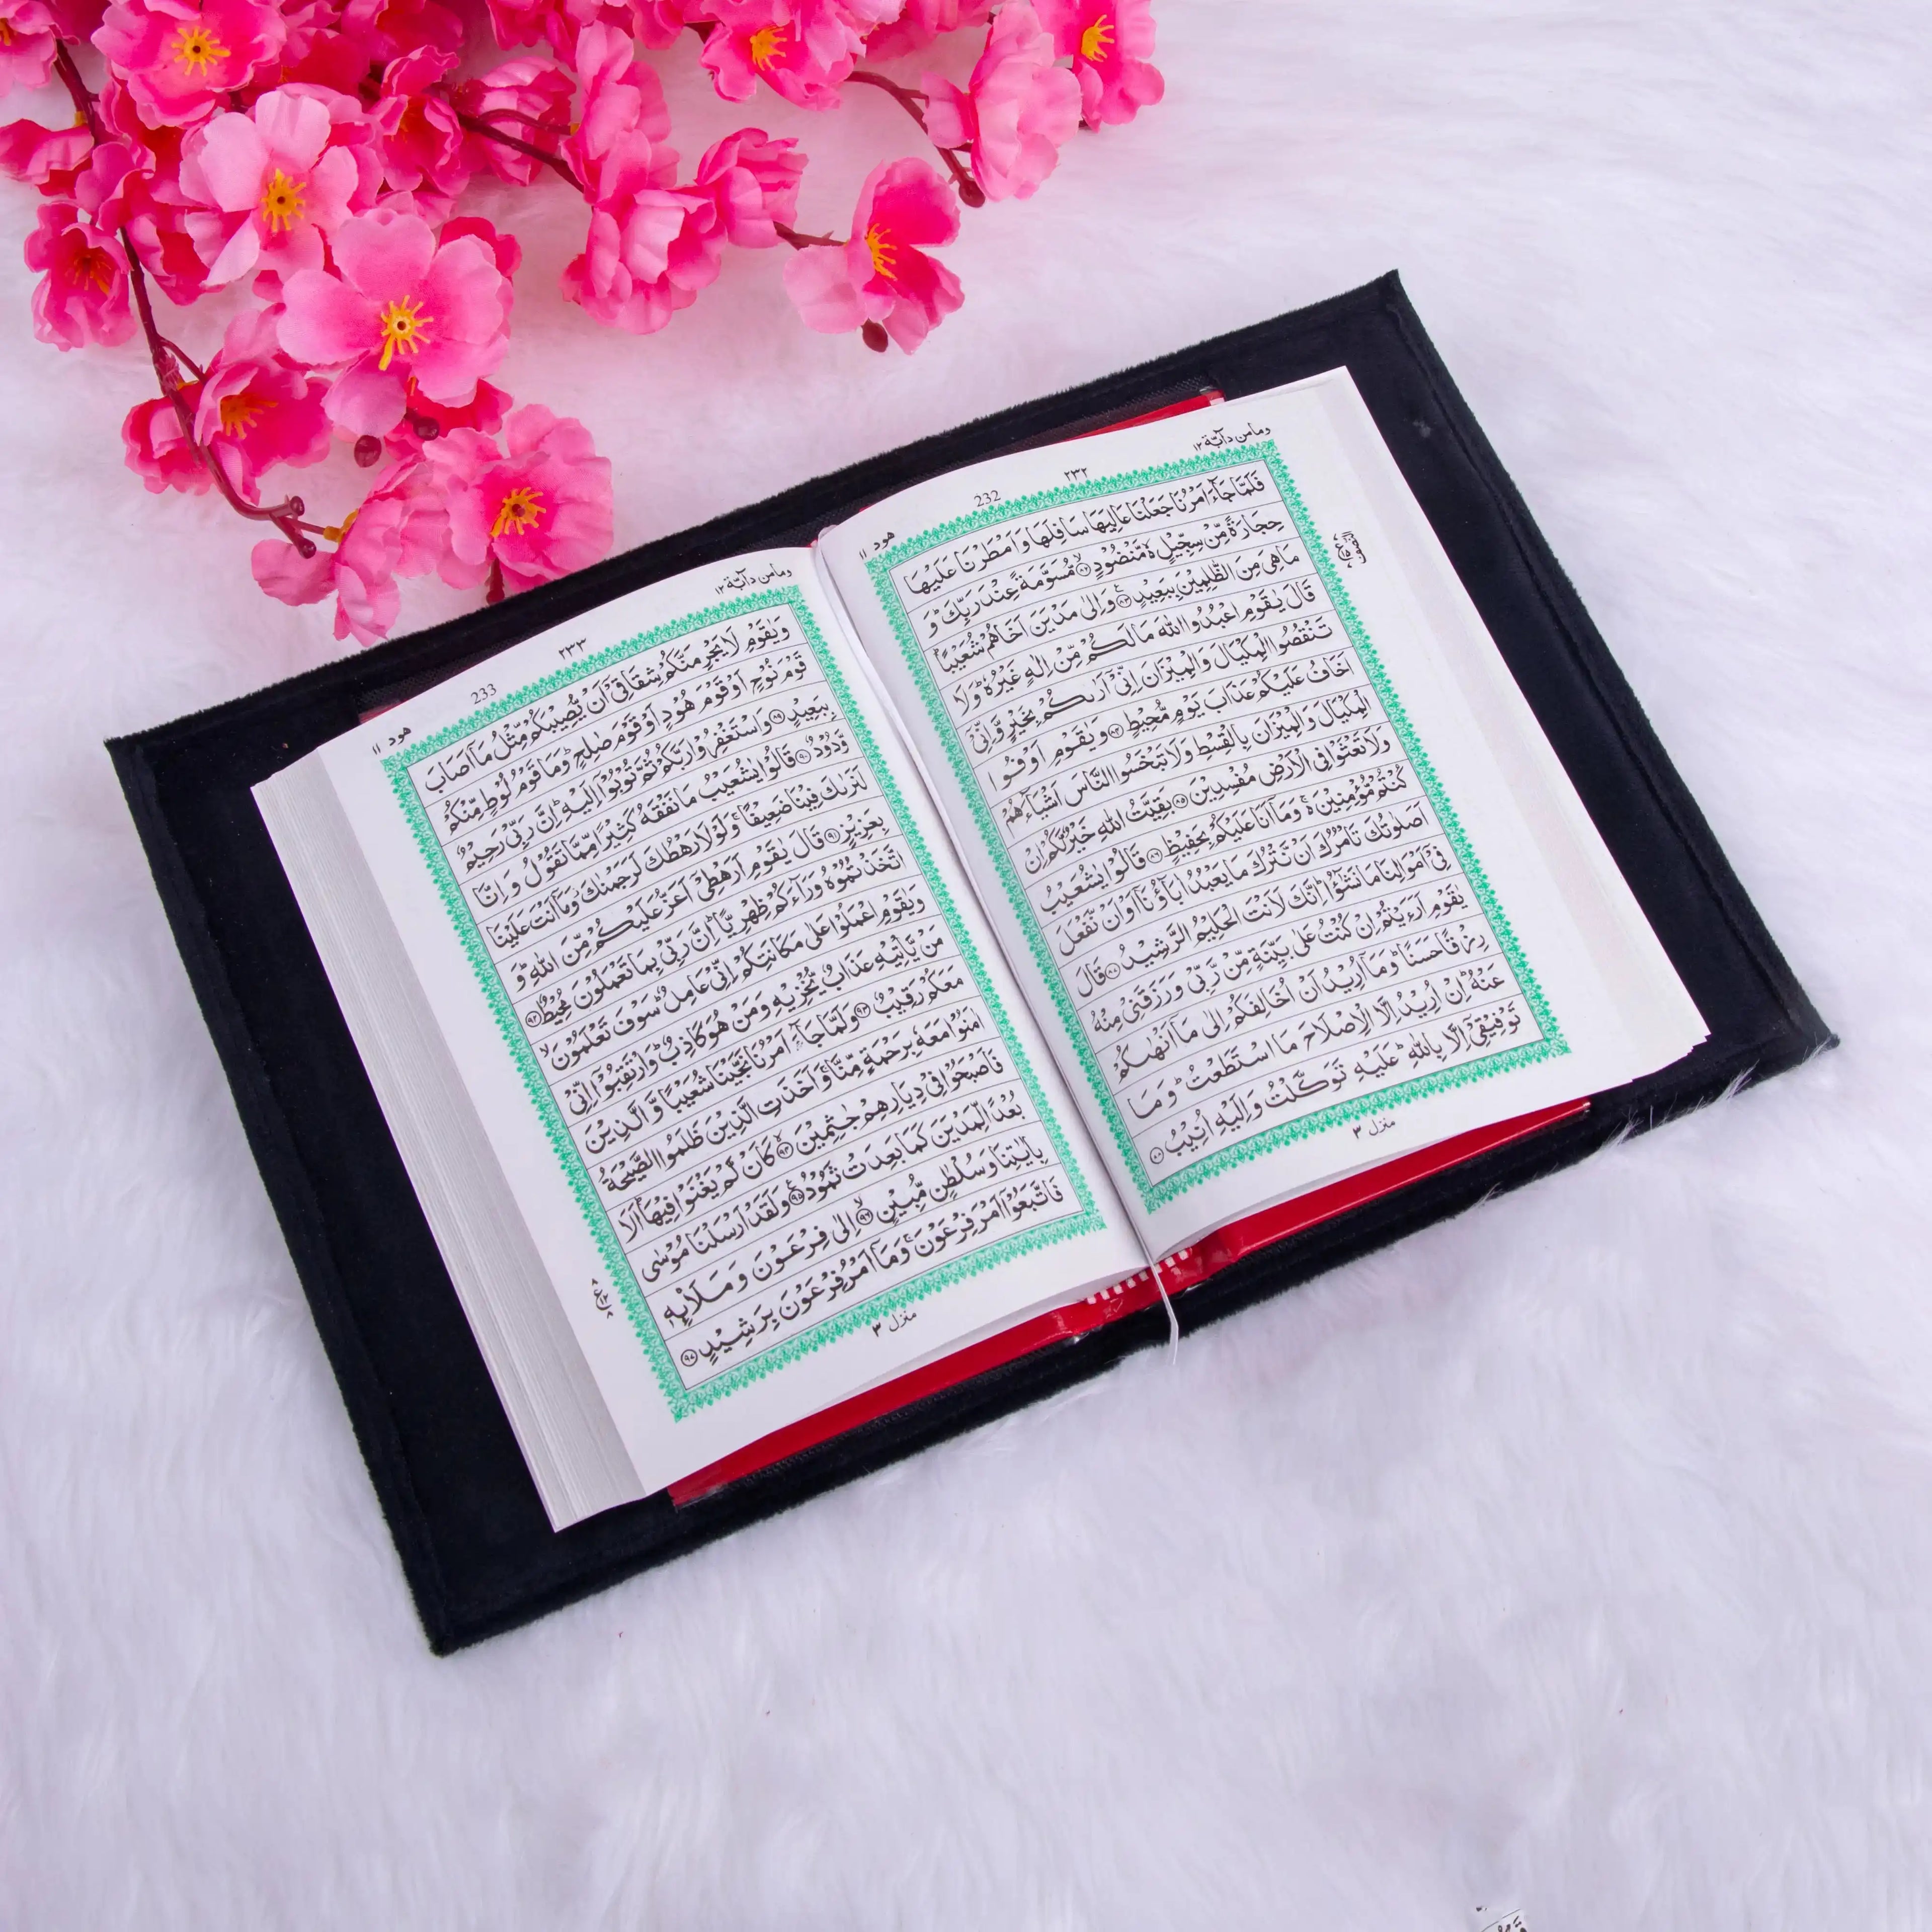 ومامن دآبۃ ۱۲
۲۳۲
232
هود ۱۱
فَلَمَّا جَآءَ اَمْرُنَا جَعَلْنَا عَالِيَهَا سَافِلَهَا وَاَمْطَرْنَا عَلَيْهَا
حِجَارَةً مِّنْ سِجِّيْلٍ ۙ۬ مَّنْضُوْدٍ ۙ﴿۸۲﴾ مُّسَوَّمَةً عِنْدَ رَبِّكَ ؕ وَ
مَا هِیَ مِنَ الظّٰلِمِيْنَ بِبَعِيْدٍ ﴿۸۳﴾ وَاِلٰى مَدْيَنَ اَخَاهُمْ شُعَيْبًا ؕ
قَالَ يٰقَوْمِ اعْبُدُوا اللّٰهَ مَا لَكُمْ مِّنْ اِلٰهٍ غَيْرُهٗ ؕ وَلَا
تَنْقُصُوا الْمِكْيَالَ وَالْمِيْزَانَ اِنِّیْۤ اَرٰىكُمْ بِخَيْرٍ وَّاِنِّیْۤ
اَخَافُ عَلَيْكُمْ عَذَابَ يَوْمٍ مُّحِيْطٍ ﴿۸۴﴾ وَيٰقَوْمِ اَوْفُوا
الْمِكْيَالَ وَالْمِيْزَانَ بِالْقِسْطِ وَلَا تَبْخَسُوا النَّاسَ اَشْيَآءَهُمْ
وَلَا تَعْثَوْا فِی الْاَرْضِ مُفْسِدِيْنَ ﴿۸۵﴾ بَقِيَّتُ اللّٰهِ خَيْرٌ لَّكُمْ اِنْ
كُنْتُمْ مُّؤْمِنِيْنَ ۚ۬ وَمَاۤ اَنَا عَلَيْكُمْ بِحَفِيْظٍ ﴿۸۶﴾ قَالُوْا يٰشُعَيْبُ
اَصَلٰوتُكَ تَاْمُرُكَ اَنْ نَّتْرُكَ مَا يَعْبُدُ اٰبَآؤُنَاۤ اَوْ اَنْ نَّفْعَلَ
فِیْۤ اَمْوَالِنَا مَا نَشٰٓؤُا ؕ اِنَّكَ لَاَنْتَ الْحَلِيْمُ الرَّشِيْدُ ﴿۸۷﴾ قَالَ
يٰقَوْمِ اَرَءَيْتُمْ اِنْ كُنْتُ عَلٰى بَيِّنَةٍ مِّنْ رَّبِّیْ وَرَزَقَنِیْ مِنْهُ
رِزْقًا حَسَنًا ؕ وَمَاۤ اُرِيْدُ اَنْ اُخَالِفَكُمْ اِلٰى مَاۤ اَنْهٰىكُمْ
عَنْهُ ؕ اِنْ اُرِيْدُ اِلَّا الْاِصْلَاحَ مَا اسْتَطَعْتُ ؕ وَمَا
تَوْفِيْقِیْۤ اِلَّا بِاللّٰهِ ؕ عَلَيْهِ تَوَكَّلْتُ وَاِلَيْهِ اُنِيْبُ ﴿۸۸﴾
منزل ۳
ومامن دآبۃ ۱۲
۲۳۳
233
هود ۱۱
وَيٰقَوْمِ لَا يَجْرِمَنَّكُمْ شِقَاقِیْۤ اَنْ يُّصِيْبَكُمْ مِّثْلُ مَاۤ اَصَابَ
قَوْمَ نُوْحٍ اَوْ قَوْمَ هُوْدٍ اَوْ قَوْمَ صٰلِحٍ ؕ وَمَا قَوْمُ لُوْطٍ مِّنْكُمْ
بِبَعِيْدٍ ﴿۸۹﴾ وَاسْتَغْفِرُوْا رَبَّكُمْ ثُمَّ تُوْبُوْۤا اِلَيْهِ ؕ اِنَّ رَبِّیْ رَحِيْمٌ
وَّدُوْدٌ ﴿۹۰﴾ قَالُوْا يٰشُعَيْبُ مَا نَفْقَهُ كَثِيْرًا مِّمَّا تَقُوْلُ وَاِنَّا
لَنَرٰىكَ فِيْنَا ضَعِيْفًا ۚ وَلَوْلَا رَهْطُكَ لَرَجَمْنٰكَ وَمَاۤ اَنْتَ عَلَيْنَا
بِعَزِيْزٍ ﴿۹۱﴾ قَالَ يٰقَوْمِ اَرَهْطِیْۤ اَعَزُّ عَلَيْكُمْ مِّنَ اللّٰهِ ؕ وَ
اتَّخَذْتُمُوْهُ وَرَآءَكُمْ ظِهْرِيًّا ؕ اِنَّ رَبِّیْ بِمَا تَعْمَلُوْنَ مُحِيْطٌ ﴿۹۲﴾
وَيٰقَوْمِ اعْمَلُوْا عَلٰى مَكَانَتِكُمْ اِنِّیْ عَامِلٌ ؕ سَوْفَ تَعْلَمُوْنَ ۙ
مَنْ يَّاْتِيْهِ عَذَابٌ يُّخْزِيْهِ وَمَنْ هُوَ كَاذِبٌ ؕ وَارْتَقِبُوْۤا اِنِّیْ
مَعَكُمْ رَقِيْبٌ ﴿۹۳﴾ وَلَمَّا جَآءَ اَمْرُنَا نَجَّيْنَا شُعَيْبًا وَّالَّذِيْنَ
اٰمَنُوْا مَعَهٗ بِرَحْمَةٍ مِّنَّا ۚ وَاَخَذَتِ الَّذِيْنَ ظَلَمُوا الصَّيْحَةُ
فَاَصْبَحُوْا فِیْ دِيَارِهِمْ جٰثِمِيْنَ ۙ﴿۹۴﴾ كَاَنْ لَّمْ يَغْنَوْا فِيْهَا ؕ اَلَا
بُعْدًا لِّمَدْيَنَ كَمَا بَعِدَتْ ثَمُوْدُ ﴿۹۵﴾ وَلَقَدْ اَرْسَلْنَا مُوْسٰى
بِاٰيٰتِنَا وَسُلْطٰنٍ مُّبِيْنٍ ۙ﴿۹۶﴾ اِلٰى فِرْعَوْنَ وَمَلَا۟ئِهٖ
فَاتَّبَعُوْۤا اَمْرَ فِرْعَوْنَ ۚ وَمَاۤ اَمْرُ فِرْعَوْنَ بِرَشِيْدٍ ﴿۹۷﴾
منزل ۳